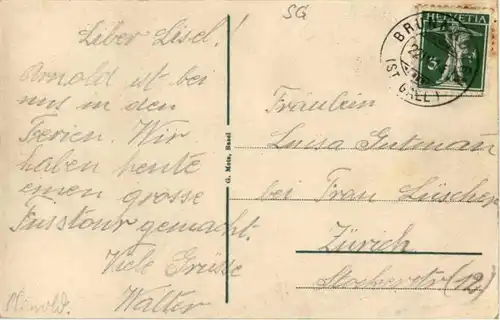 SG
Liber Lisel!
Arnold ist bei
uns in den
Ferien. Wir
haben heute
einen grosse
Fusstour gemacht.
Viele Grüsse
Walter
Arnold.
G. Metz, Basel
HELVETIA
(ST. GALL)
Fräulein
Luisa Gutmann
bei Frau Lüscher
Zürich
Stockerstr (12)